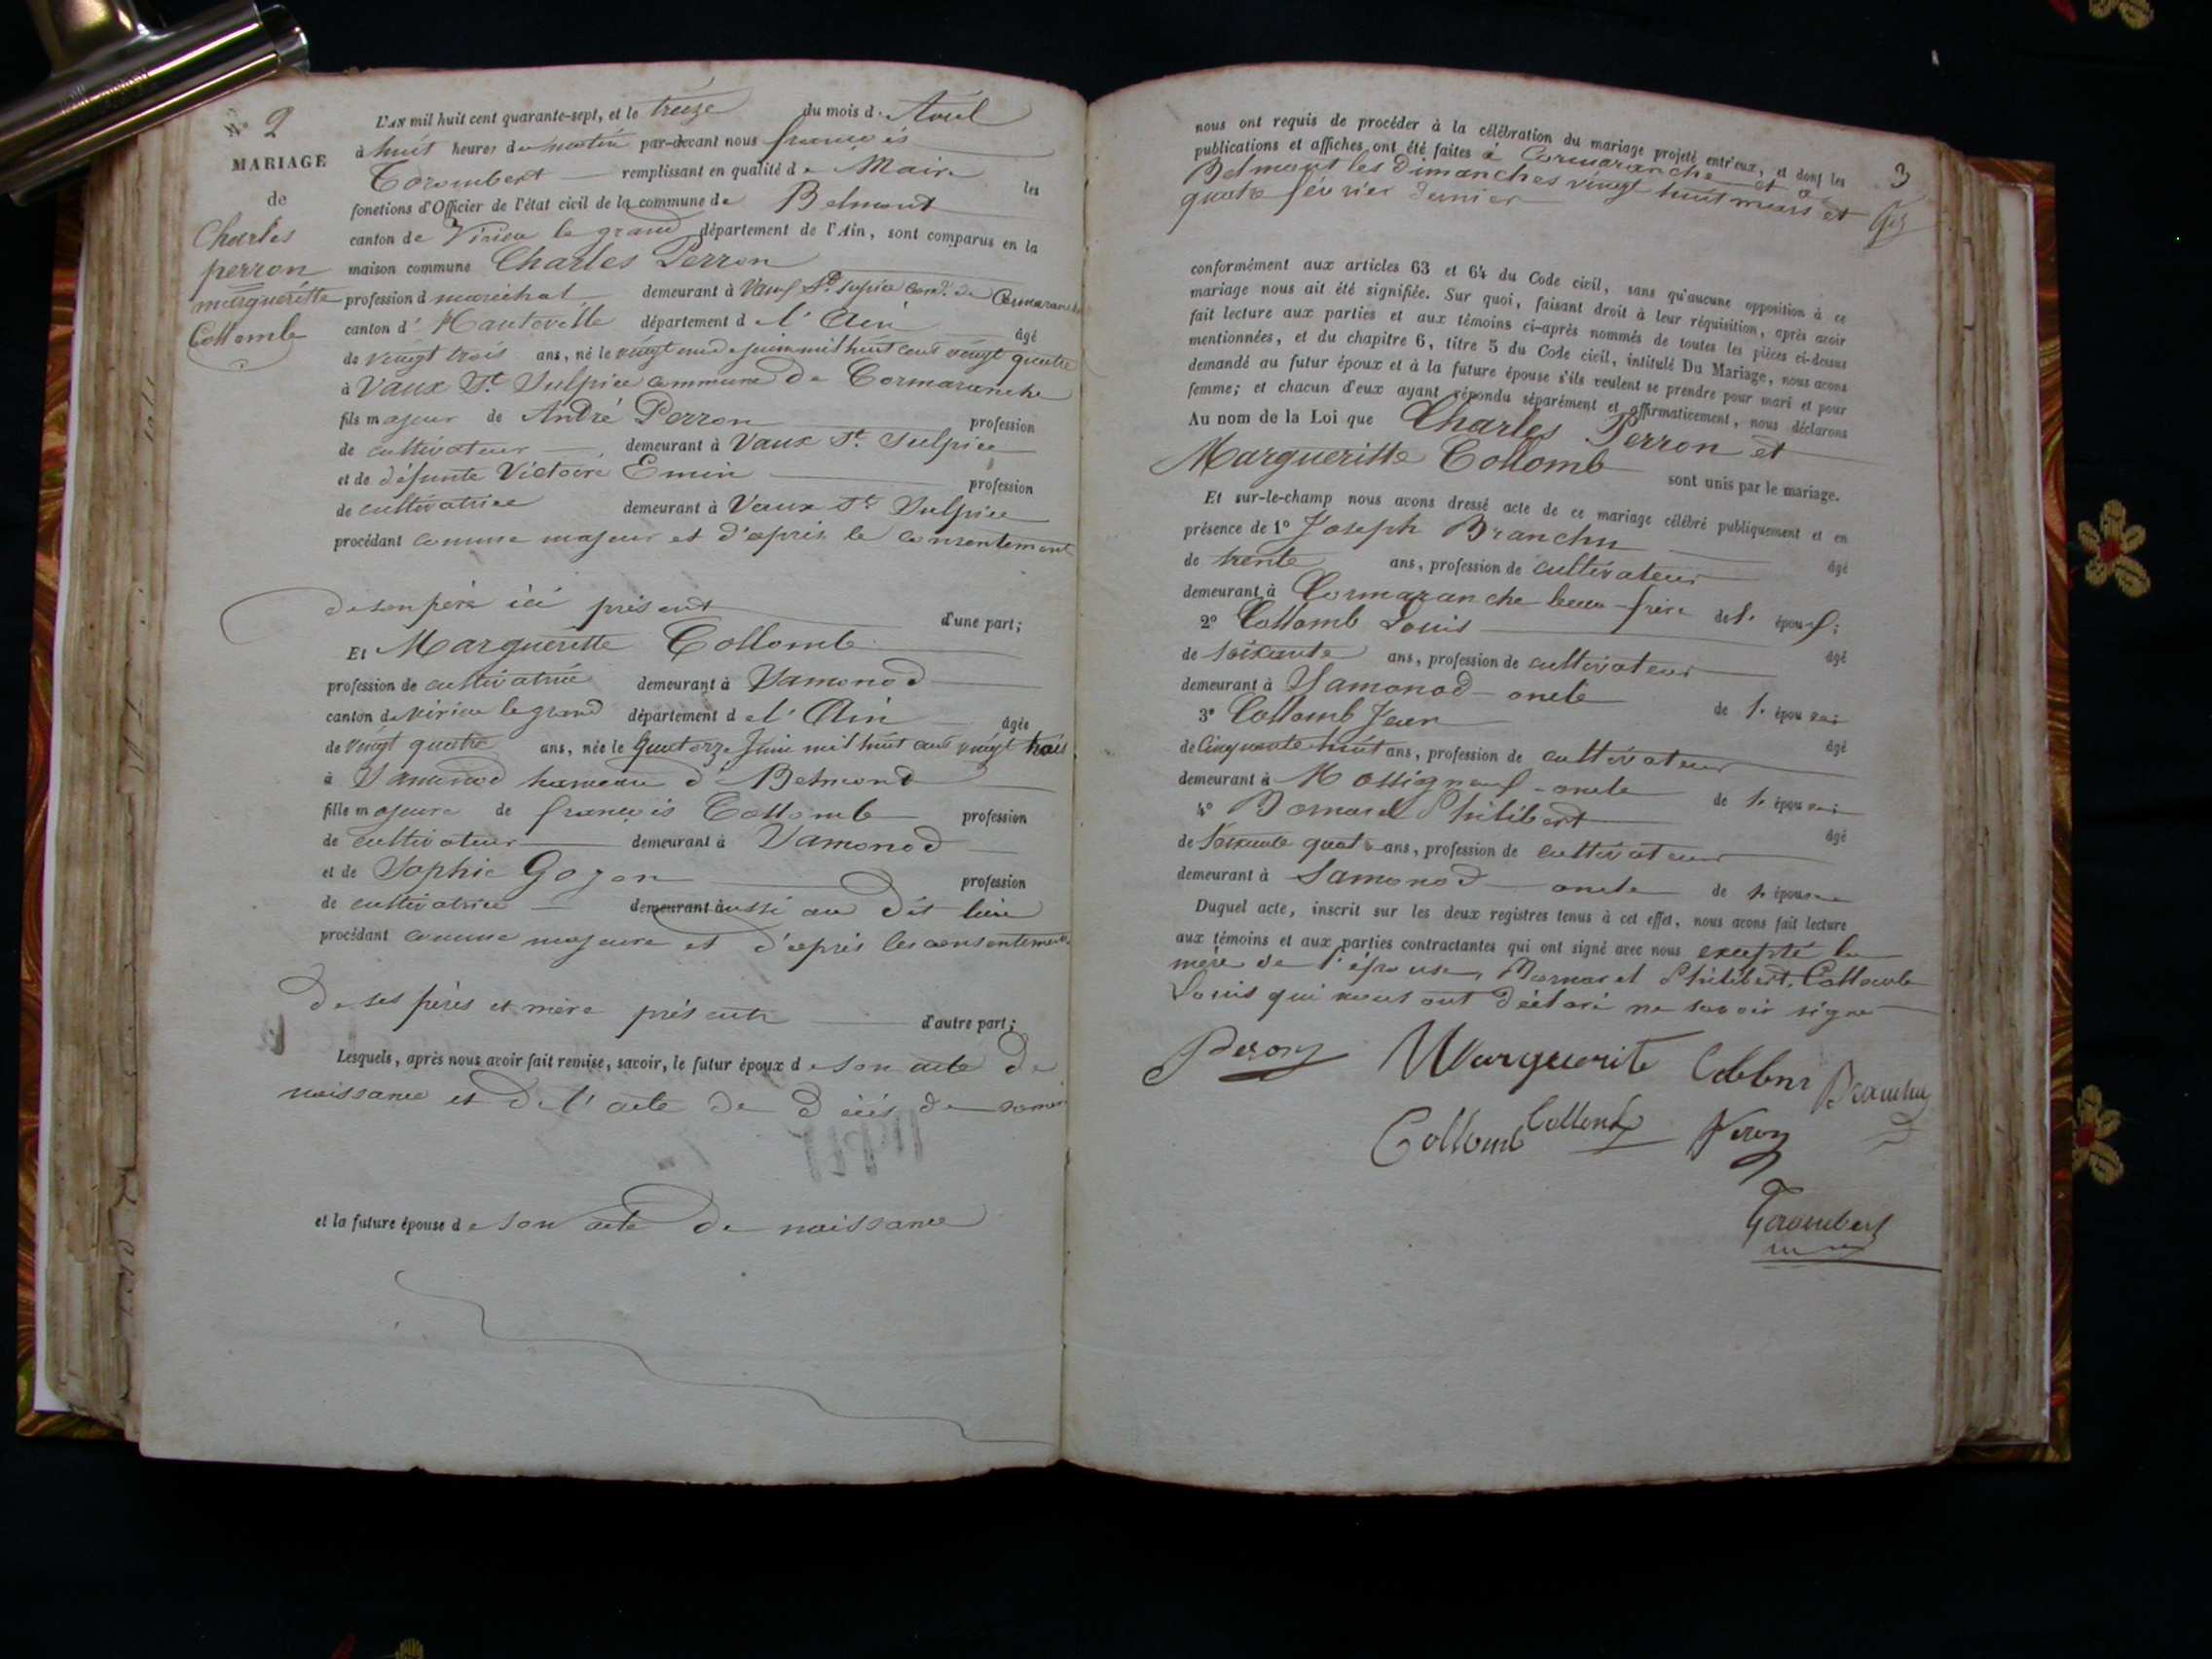 N° 2
MARIAGE
de
Charles
perron
margueritte
Collomb
L'AN mil huit cent quarante-sept, et le treize du mois d'Avril
à huit heures du matin par-devant nous françois
Torombert remplissant en qualité de Maire les
fonctions d'Officier de l'état civil de la commune de Belmont
canton de Virieu le grand département de l'Ain, sont comparus en la
maison commune Charles Perron
profession d maréchal demeurant à Vaux St. Sulpice com. de Cormaranche
canton d'Hauteville département de l'Ain âgé
de vingt trois ans, né le vingt un de juin mil huit cent vingt quatre
à Vaux St. Sulpice commune de Cormaranche
fils majeur de André Perron profession
de cultivateur demeurant à Vaux St. Sulpice
et de défunte Victoire Emin profession
de cultivatrice demeurant à Vaux St. Sulpice
procédant comme majeur et d'après le consentement
de son père ici présent d'une part;
Et Margueritte Collomb
profession de cultivatrice demeurant à Samonod
canton de virieu le grand département de l'Ain âgée
de vingt quatre ans, née le quatorze Juin mil huit cent vingt trois
à Samonod hameau d' Belmont
fille majeure de françois Collomb profession
de cultivateur demeurant à Samonod
et de Sophie Gojon profession
de cultivatrice demeurant aussi au dit lieu
procédant comme majeure et d'après les consentements
de ses pères et mère présents d'autre part;
Lesquels, après nous avoir fait remise, savoir, le futur époux de son acte de
naissance et de l'acte de décés de sa mère
et la future épouse de son acte de naissance
3
nous ont requis de procéder à la célébration du mariage projeté entr'eux, et dont les
publications et affiches ont été faites à Cormaranche et à
Belmont les Dimanches vingt huit mars et
quatre février dernier
conformément aux articles 63 et 64 du Code civil, sans qu'aucune opposition à ce
mariage nous ait été signifiée. Sur quoi, faisant droit à leur réquisition, après avoir
fait lecture aux parties et aux témoins ci-après nommés de toutes les pièces ci-dessus
mentionnées, et du chapitre 6, titre 5 du Code civil, intitulé Du Mariage, nous avons
demandé au futur époux et à la future épouse s'ils veulent se prendre pour mari et pour
femme; et chacun d'eux ayant répondu séparément et affirmativement, nous déclarons
Au nom de la Loi que Charles Perron et
Margueritte Collomb sont unis par le mariage.
Et sur-le-champ nous avons dressé acte de ce mariage célébré publiquement et en
présence de 1° Joseph Branchu âgé
de trente ans, profession de cultivateur
demeurant à Cormaranche beau-frère de l' époux;
2° Collomb Louis âgé
de soixante ans, profession de cultivateur
demeurant à Samonod oncle de l' épouse;
3° Collomb Jean âgé
de Cinquante huit ans, profession de cultivateur
demeurant à oncle de l' épouse;
4° Bornarel Philibert âgé
de soixante quatre ans, profession de cultivateur
demeurant à Samonod oncle de l' épouse
Duquel acte, inscrit sur les deux registres tenus à cet effet, nous avons fait lecture
aux témoins et aux parties contractantes qui ont signé avec nous excepté la
mère de l'épouse, Bornarel Philibert, Collomb
Louis qui nous ont déclaré ne savoir signer
Peron Marguerite Collom Branchu
Collomb Collomb Peron
Torombert